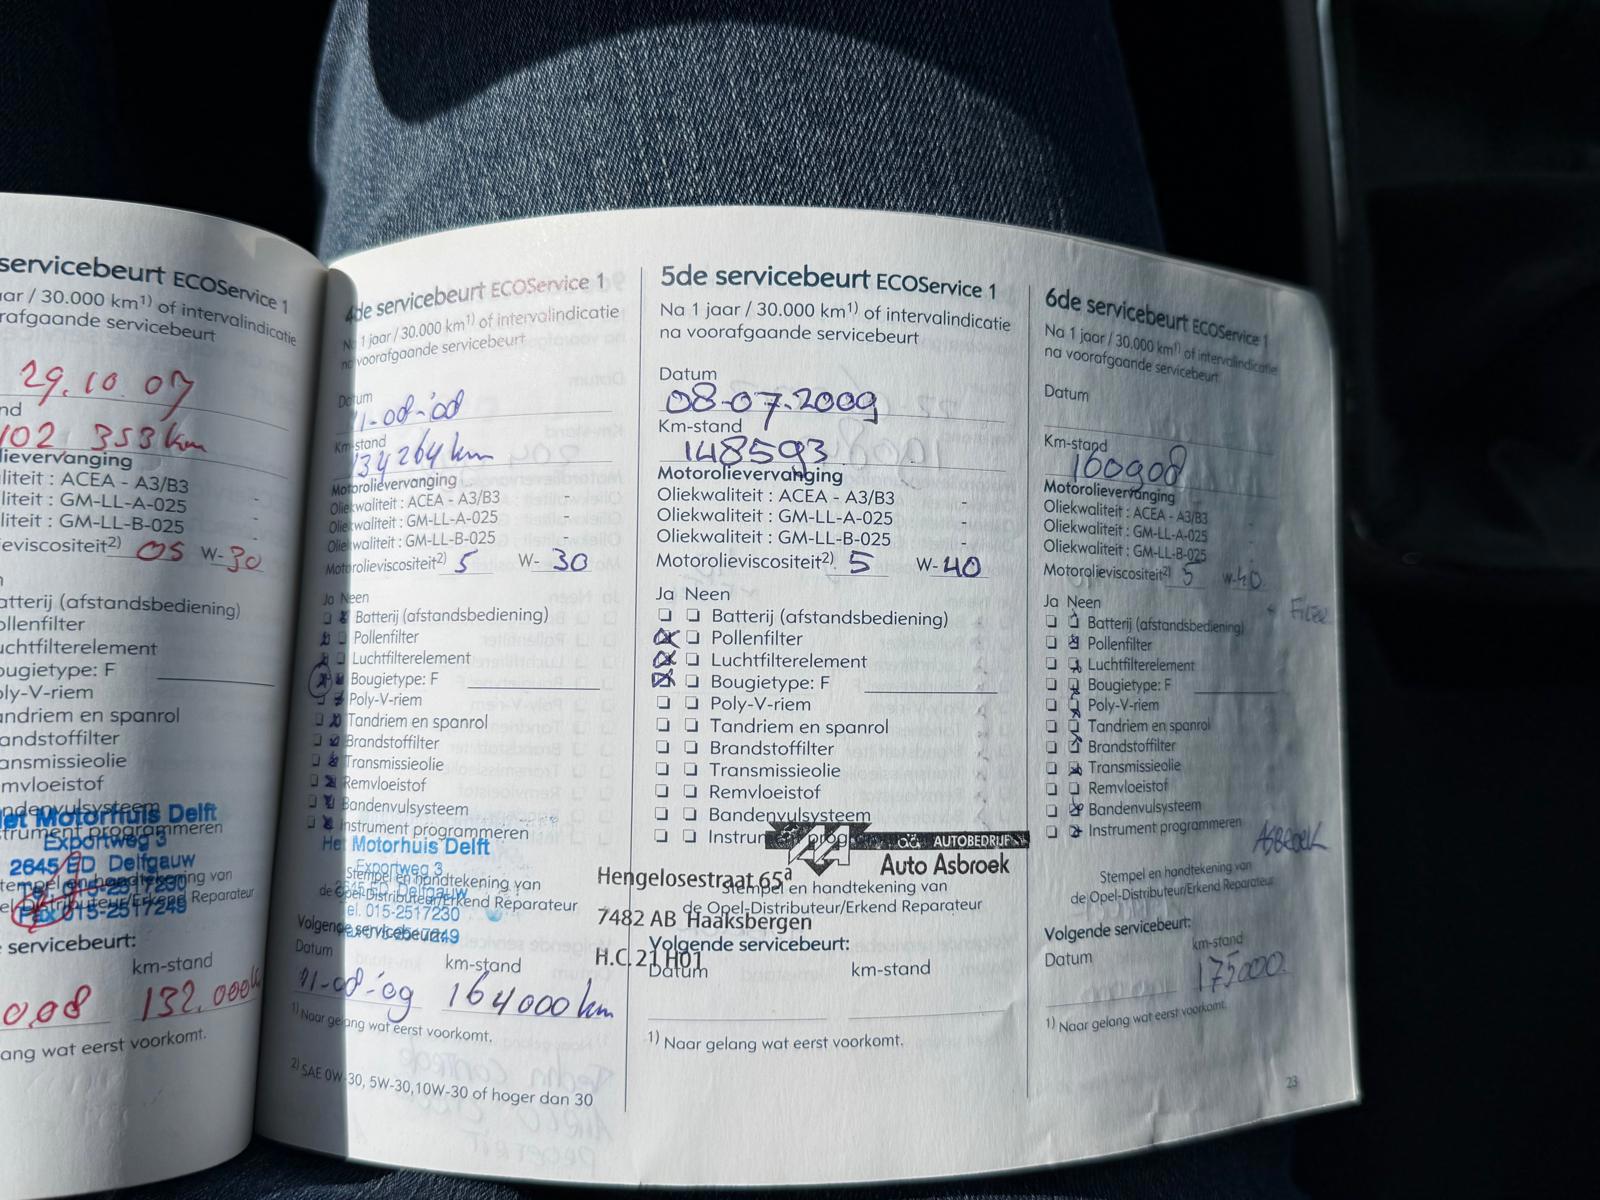 servicebeurt ECOService 1
aar / 30.000 km1) of intervalindicatie
rafgaande servicebeurt
29.10.07
nd
102 353 km
lievervanging
liteit : ACEA - A3/B3
liteit : GM-LL-A-025 -
liteit : GM-LL-B-025 -
ieviscositeit2) 05 W-30
atterij (afstandsbediening)
ollenfilter
uchtfilterelement
ougietype: F
oly-V-riem
andriem en spanrol
andstoffilter
ansmissieolie
mvloeistof
ndenvulsysteem
strument programmeren
Het Motorhuis Delft
Exportweg 3
2645 ED Delfgauw
Tel. 015-2517230
Fax 015-2517249
tempel en handtekening van
el-Distributeur/Erkend Reparateur
e servicebeurt:
km-stand
0.08 132.000
ang wat eerst voorkomt.
4de servicebeurt ECOService 1
Na 1 jaar / 30.000 km1) of intervalindicatie
na voorafgaande servicebeurt
Datum
11-08-'08
Km-stand
134264 km
Motorolievervanging
Oliekwaliteit : ACEA - A3/B3 -
Oliekwaliteit : GM-LL-A-025 -
Oliekwaliteit : GM-LL-B-025
Motorolieviscositeit2) 5 W- 30
Ja Neen
Batterij (afstandsbediening)
Pollenfilter
Luchtfilterelement
Bougietype: F
Poly-V-riem
Tandriem en spanrol
Brandstoffilter
Transmissieolie
Remvloeistof
Bandenvulsysteem
Instrument programmeren
Het Motorhuis Delft
Exportweg 3
2645 ED Delfgauw
Tel. 015-2517230
Fax 015-2517249
Stempel en handtekening van
de Opel-Distributeur/Erkend Reparateur
Volgende servicebeurt:
Datum km-stand
11-08-'09 164000 km
1) Naar gelang wat eerst voorkomt.
2) SAE 0W-30, 5W-30,10W-30 of hoger dan 30
5de servicebeurt ECOService 1
Na 1 jaar / 30.000 km1) of intervalindicatie
na voorafgaande servicebeurt
Datum
08-07-2009
Km-stand
148593
Motorolievervanging
Oliekwaliteit : ACEA - A3/B3 -
Oliekwaliteit : GM-LL-A-025 -
Oliekwaliteit : GM-LL-B-025 -
Motorolieviscositeit2) 5 W- 40
Ja Neen
Batterij (afstandsbediening)
Pollenfilter
Luchtfilterelement
Bougietype: F
Poly-V-riem
Tandriem en spanrol
Brandstoffilter
Transmissieolie
Remvloeistof
Bandenvulsysteem
Instrument prog
AUTOBEDRIJF
Auto Asbroek
Hengelosestraat 65a
7482 AB Haaksbergen
H.C. 21 H01
Stempel en handtekening van
de Opel-Distributeur/Erkend Reparateur
Volgende servicebeurt:
Datum km-stand
1) Naar gelang wat eerst voorkomt.
6de servicebeurt ECOService 1
Na 1 jaar / 30.000 km1) of intervalindicatie
na voorafgaande servicebeurt
Datum
Km-stand
160908
Motorolievervanging
Oliekwaliteit : ACEA - A3/B3 -
Oliekwaliteit : GM-LL-A-025 -
Oliekwaliteit : GM-LL-B-025 -
Motorolieviscositeit2) 5 W-40
+ Filter
Ja Neen
Batterij (afstandsbediening)
Pollenfilter
Luchtfilterelement
Bougietype: F
Poly-V-riem
Tandriem en spanrol
Brandstoffilter
Transmissieolie
Remvloeistof
Bandenvulsysteem
Instrument programmeren
Asbroek
Stempel en handtekening van
de Opel-Distributeur/Erkend Reparateur
Volgende servicebeurt:
Datum km-stand
175000
1) Naar gelang wat eerst voorkomt.
23